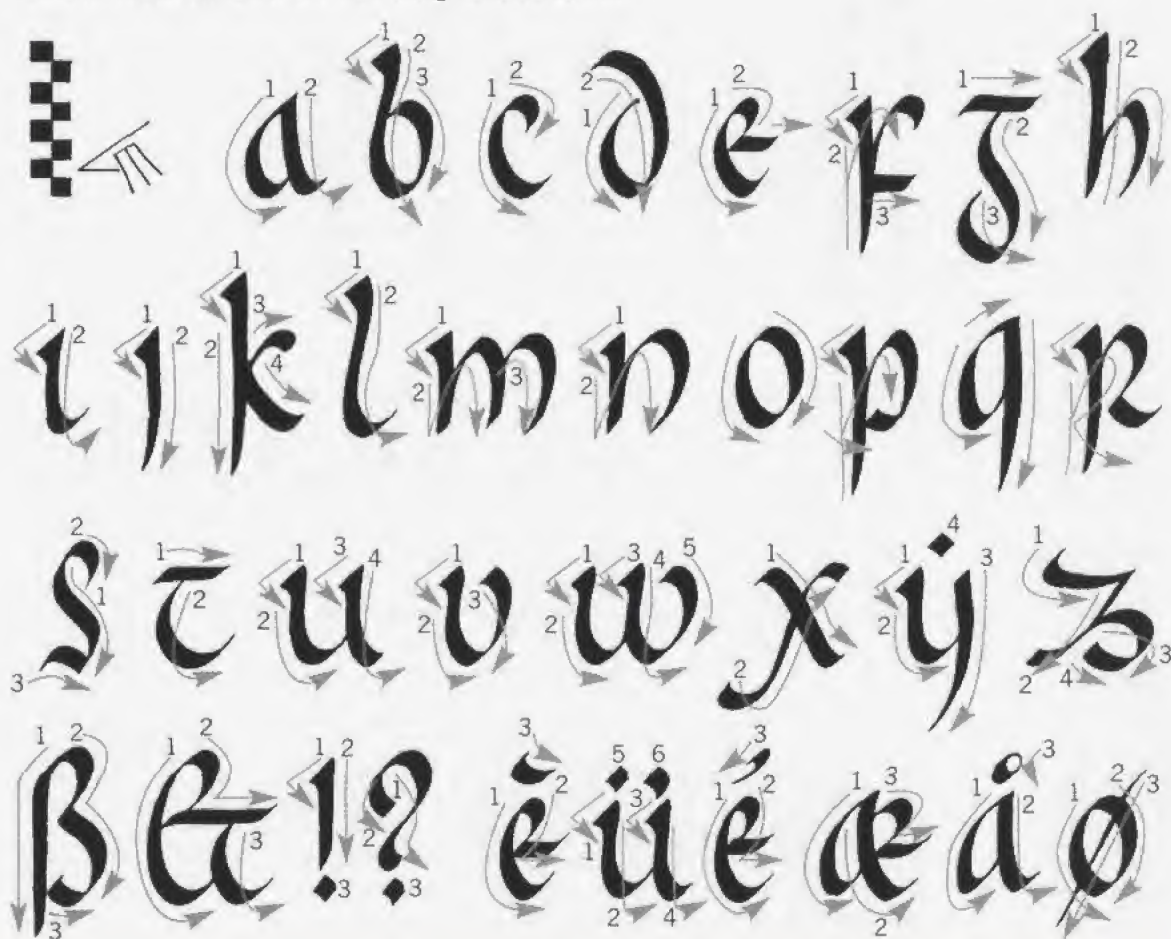 a b c d e f g h
ı j k l m n o p q r
s t u v w x ẏ z
ß & ! ? è ü é æ å ø